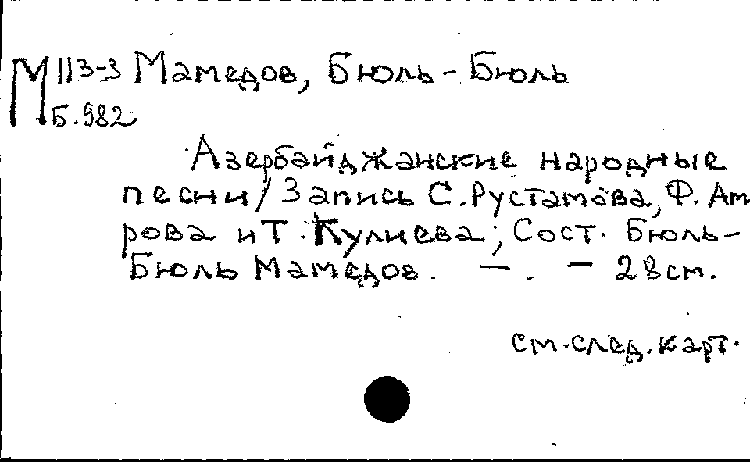 М 113-3 Мамедов, Бюль-Бюль
Б.982
Азербайджанские народные
песни / Запись С. Рустамова, Ф. Ам
рова и Т. Кулиева; Сост. Бюль-
Бюль Мамедов. — . — 28 см.
см. след. карт.